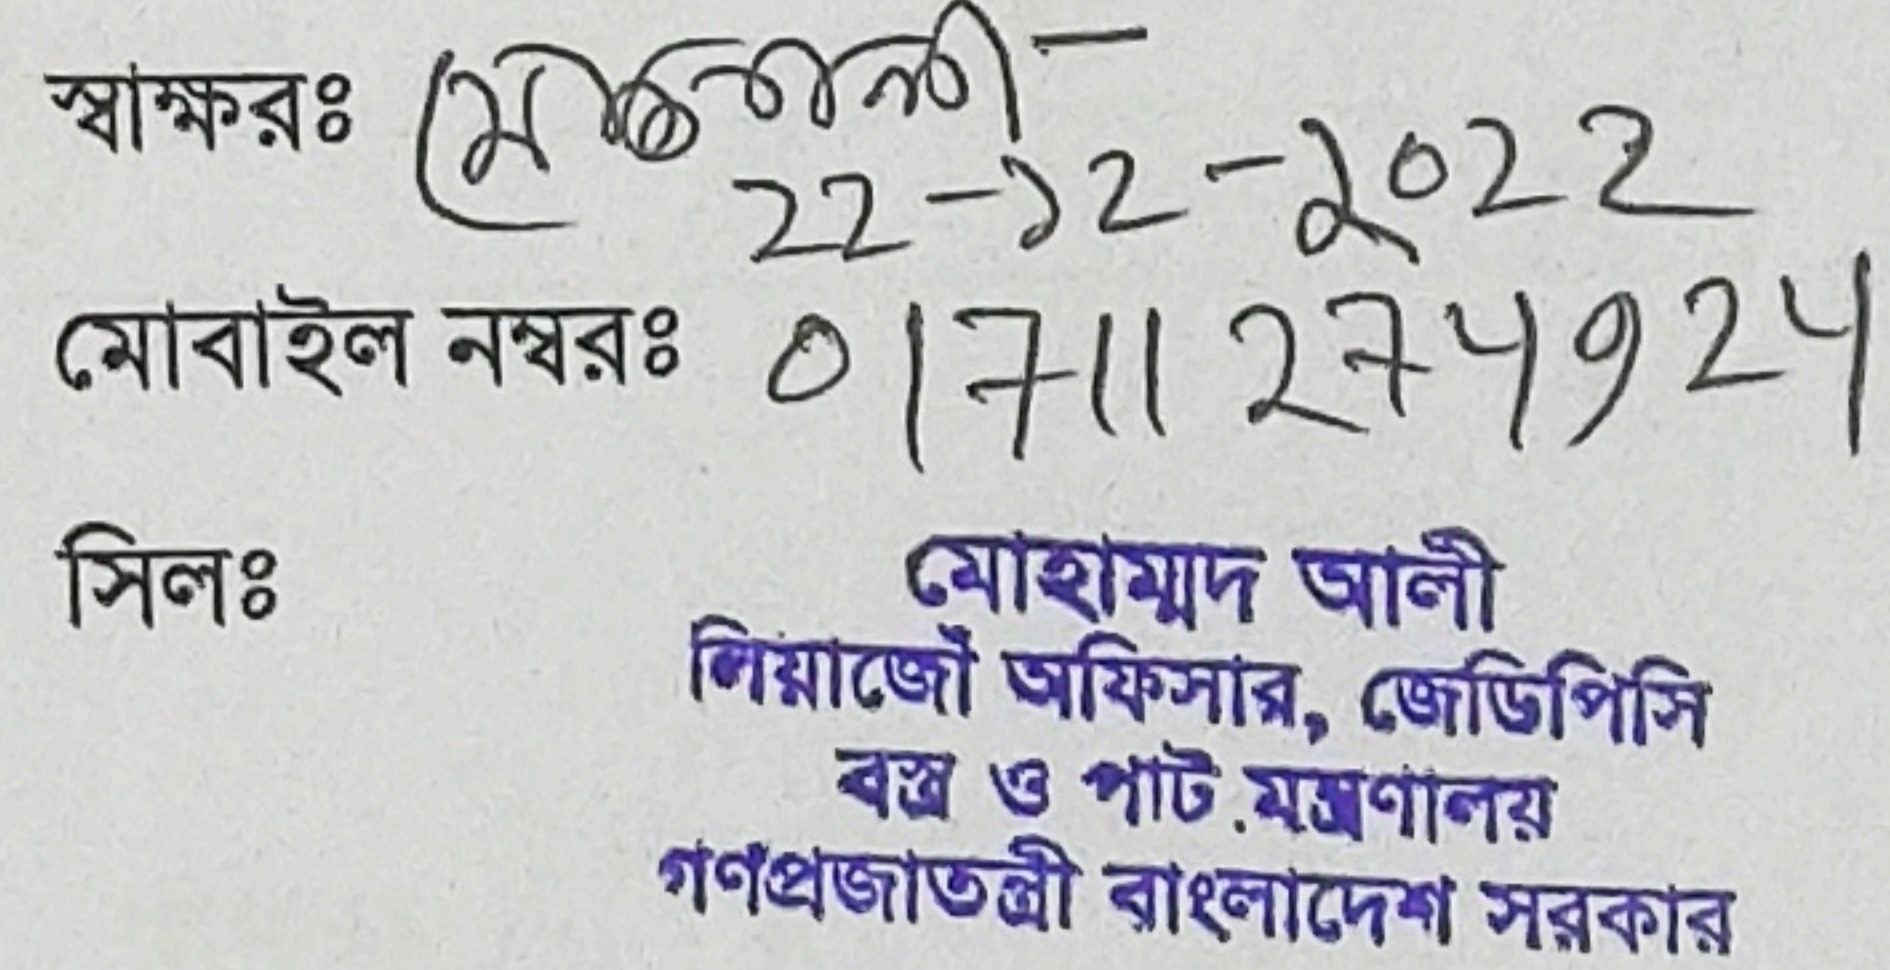 স্বাক্ষরঃ
22-১2-২022
মোবাইল নম্বরঃ 01711274924
সিলঃ
মোহাম্মদ আলী
লিয়াজোঁ অফিসার, জেডিপিসি
বস্ত্র ও পাট মন্ত্রণালয়
গণপ্রজাতন্ত্রী বাংলাদেশ সরকার